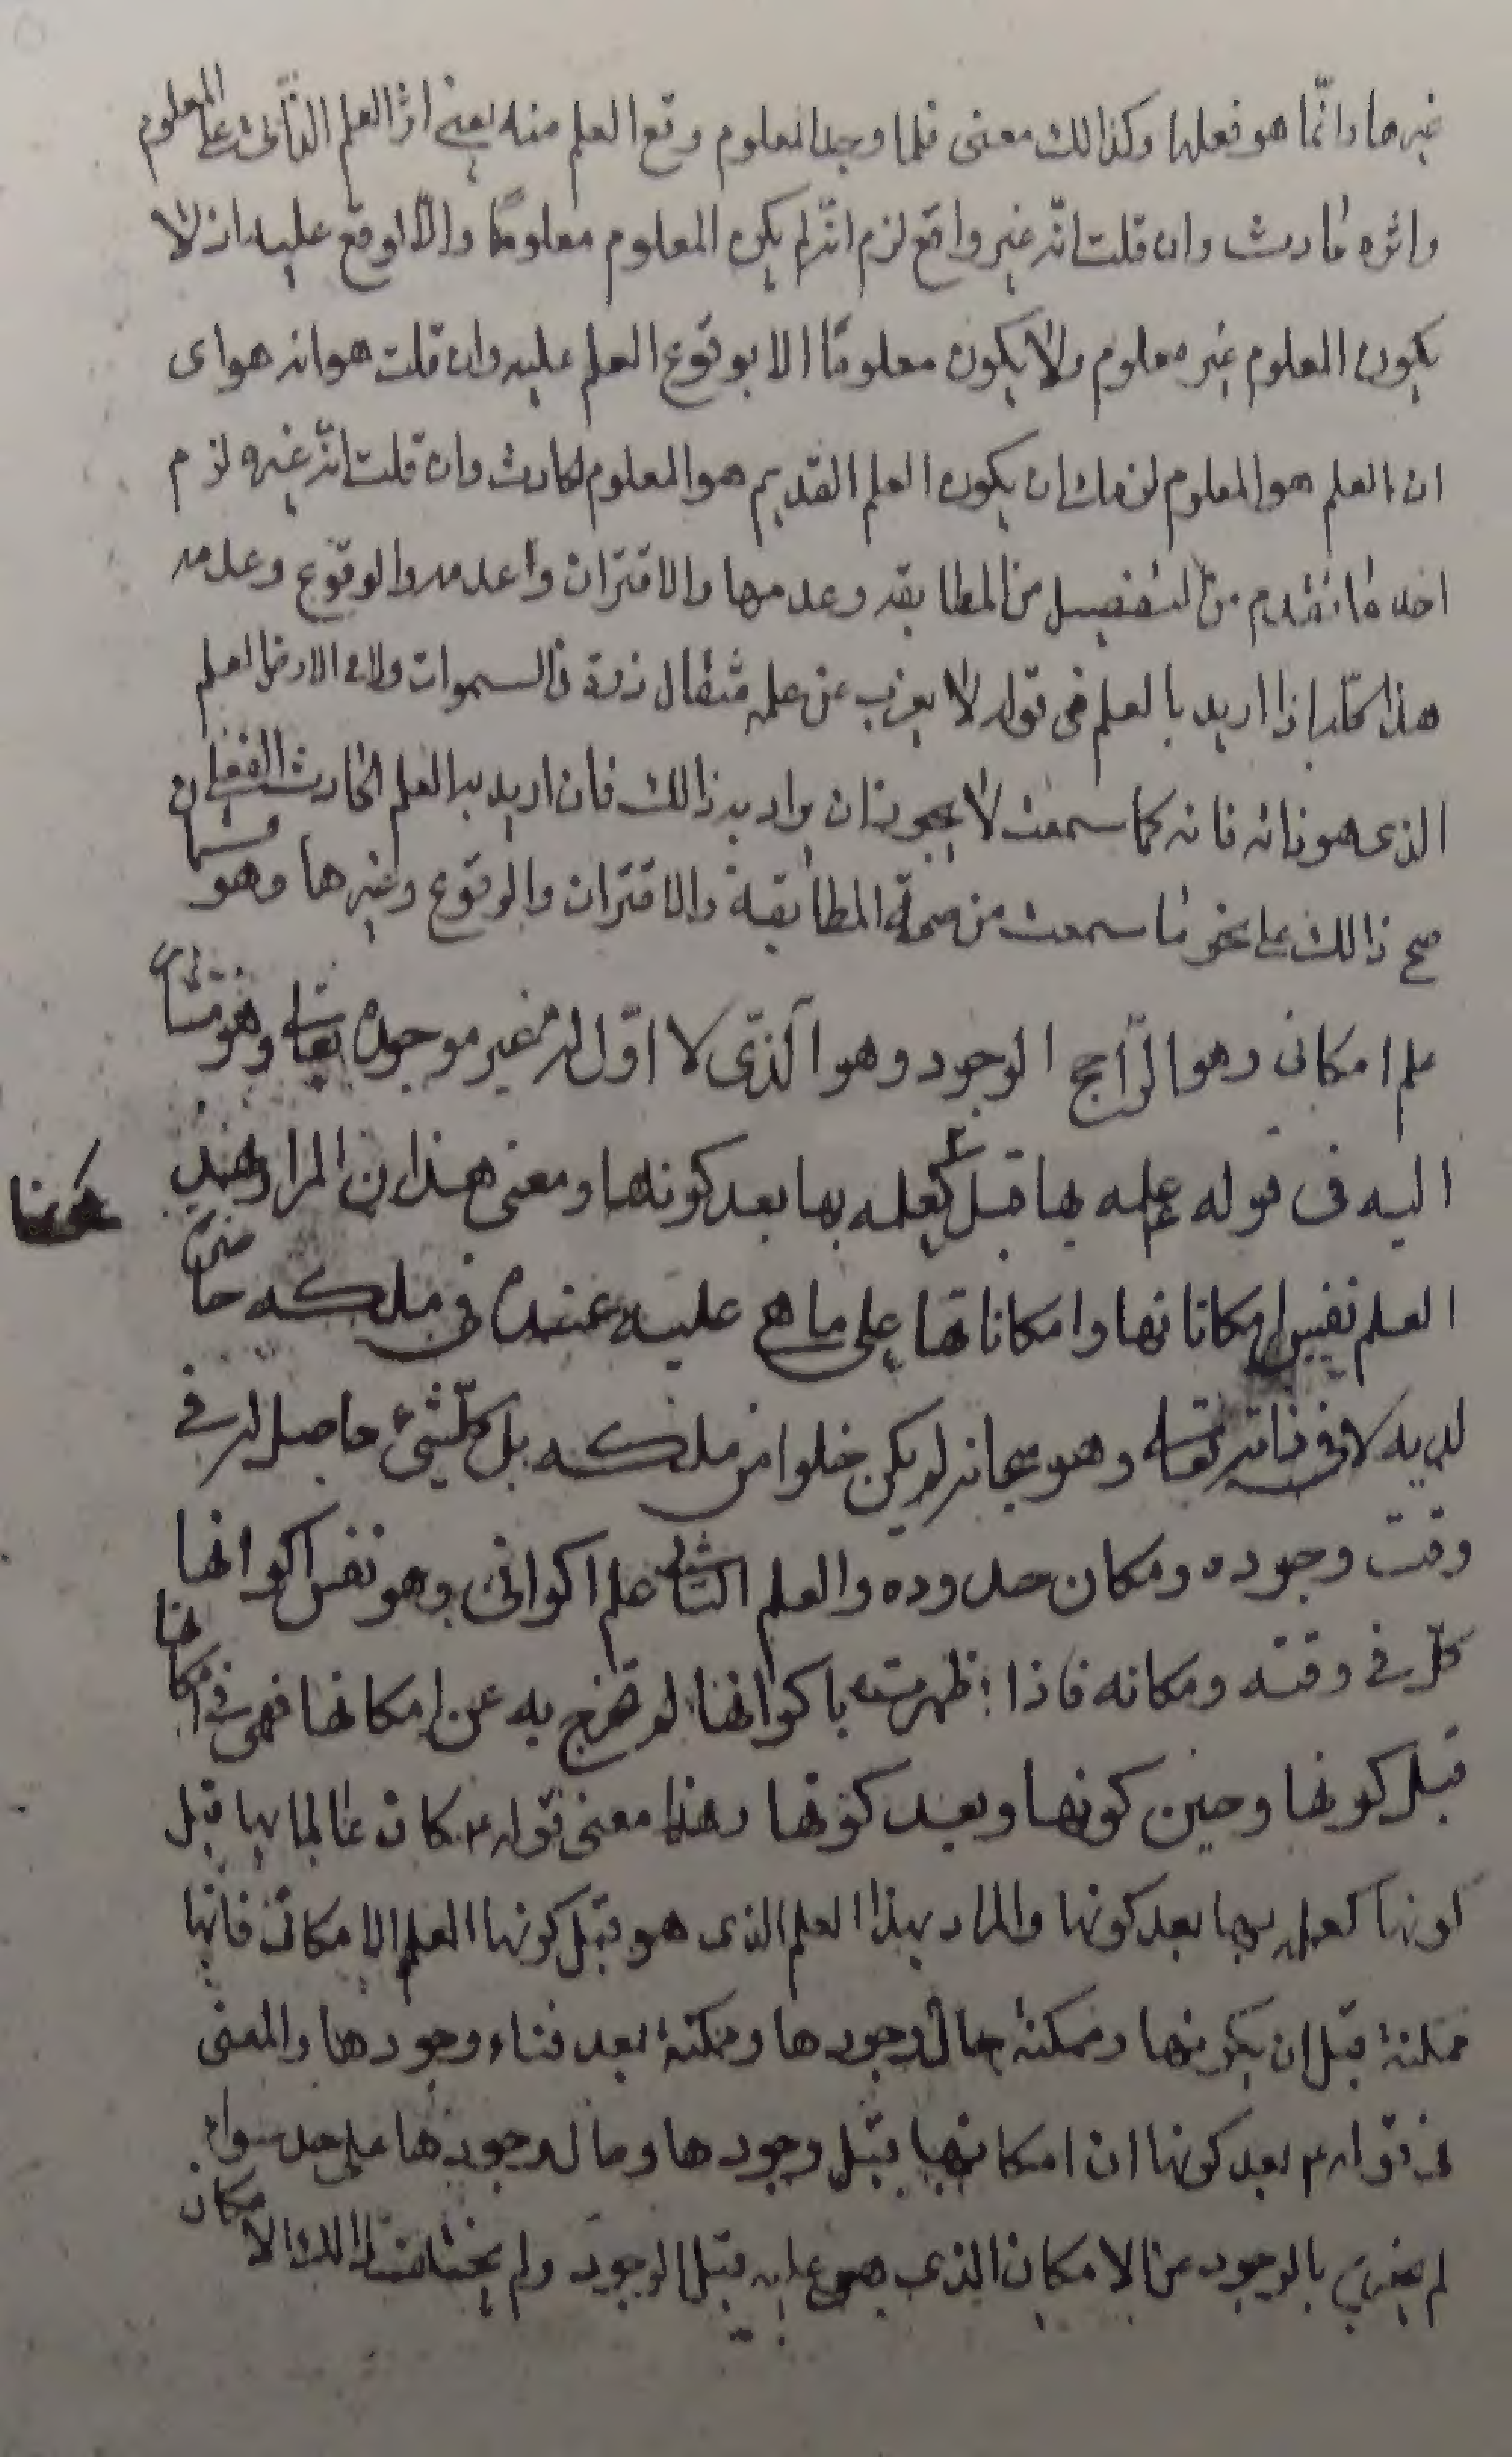 غيرها وانّما هو فعلها وكذالك معنى فلما وجد المعلوم وقع العلم منه يعنى اثر العلم الذاتى على المعلوم
واثره حادث وان قلت انّه غير واقع لزم انّه لم يكن المعلوم معلومًا والّا لوقع عليه اذ لا
يكون المعلوم غير معلوم ولا يكون معلومًا الا بوقوع العلم عليه وان قلت هو انه هو اى
ان العلم هو المعلوم لزمك ان يكون العلم القديم هو المعلوم الحادث وان قلت انّه غيره لزم
احد ما تقدم من التفصيل من المطابقه وعدمها والاقتران وعدمه والوقوع وعدمه
هذا كلّه اذا اريد بالعلم فى قوله لا يعزب عن علمه مثقال ذرة فى السموات ولا فى الارض العلم
الذى هو ذاته فانه كما سمعت لا يجوز ان يراد به ذالك فان اريد به العلم الحادث الفعلى
صح ذالك على نحو ما سمعت من صحة المطابقة والاقتران والوقوع وغيرها وهو قسمان
علم امكانى وهو الرّاجح الوجود وهو الّذى لا اوّل له غير موجده تعالى وهو مشار
اليه فى قوله علمه بها قبل كعلمه بها بعد كونها ومعنى هذا ان المراد بهذا
كونها
العلم نفس امكاناتها وامكاناتها على ما هى عليه عنده فى ملكه حاضرة
لديه لا فى ذاته تعالى وهو سبحانه لم يكن خلوا من ملكه بل كلّ شئ حاصل له فى
وقت وجوده ومكان حدوده والعلم الثانى علم اكوانى وهو نفس اكوانها
كلّ فى وقته ومكانه فاذا ظهرت باكوانها لم تخرج به عن امكانها فهى فى امكانها
قبل كونها وحين كونها وبعد كونها وهذا معنى قوله ع كان عالما بها قبل
كونها كعلمه بها بعد كونها والمراد بهذا العلم الذى هو قبل كونها العلم الامكانى فانّها
ممكنة قبل ان يكونها وممكنة حال وجودها وممكنة بعد فناء وجودها والمعنى
فى قوله ع بعد كونها ان امكانها قبل وجودها وحال وجودها على حد سواء
لم يخرج بالوجود عن الامكان الذى هو عليه قبل الوجود ولم يختلف ذالك الامكان